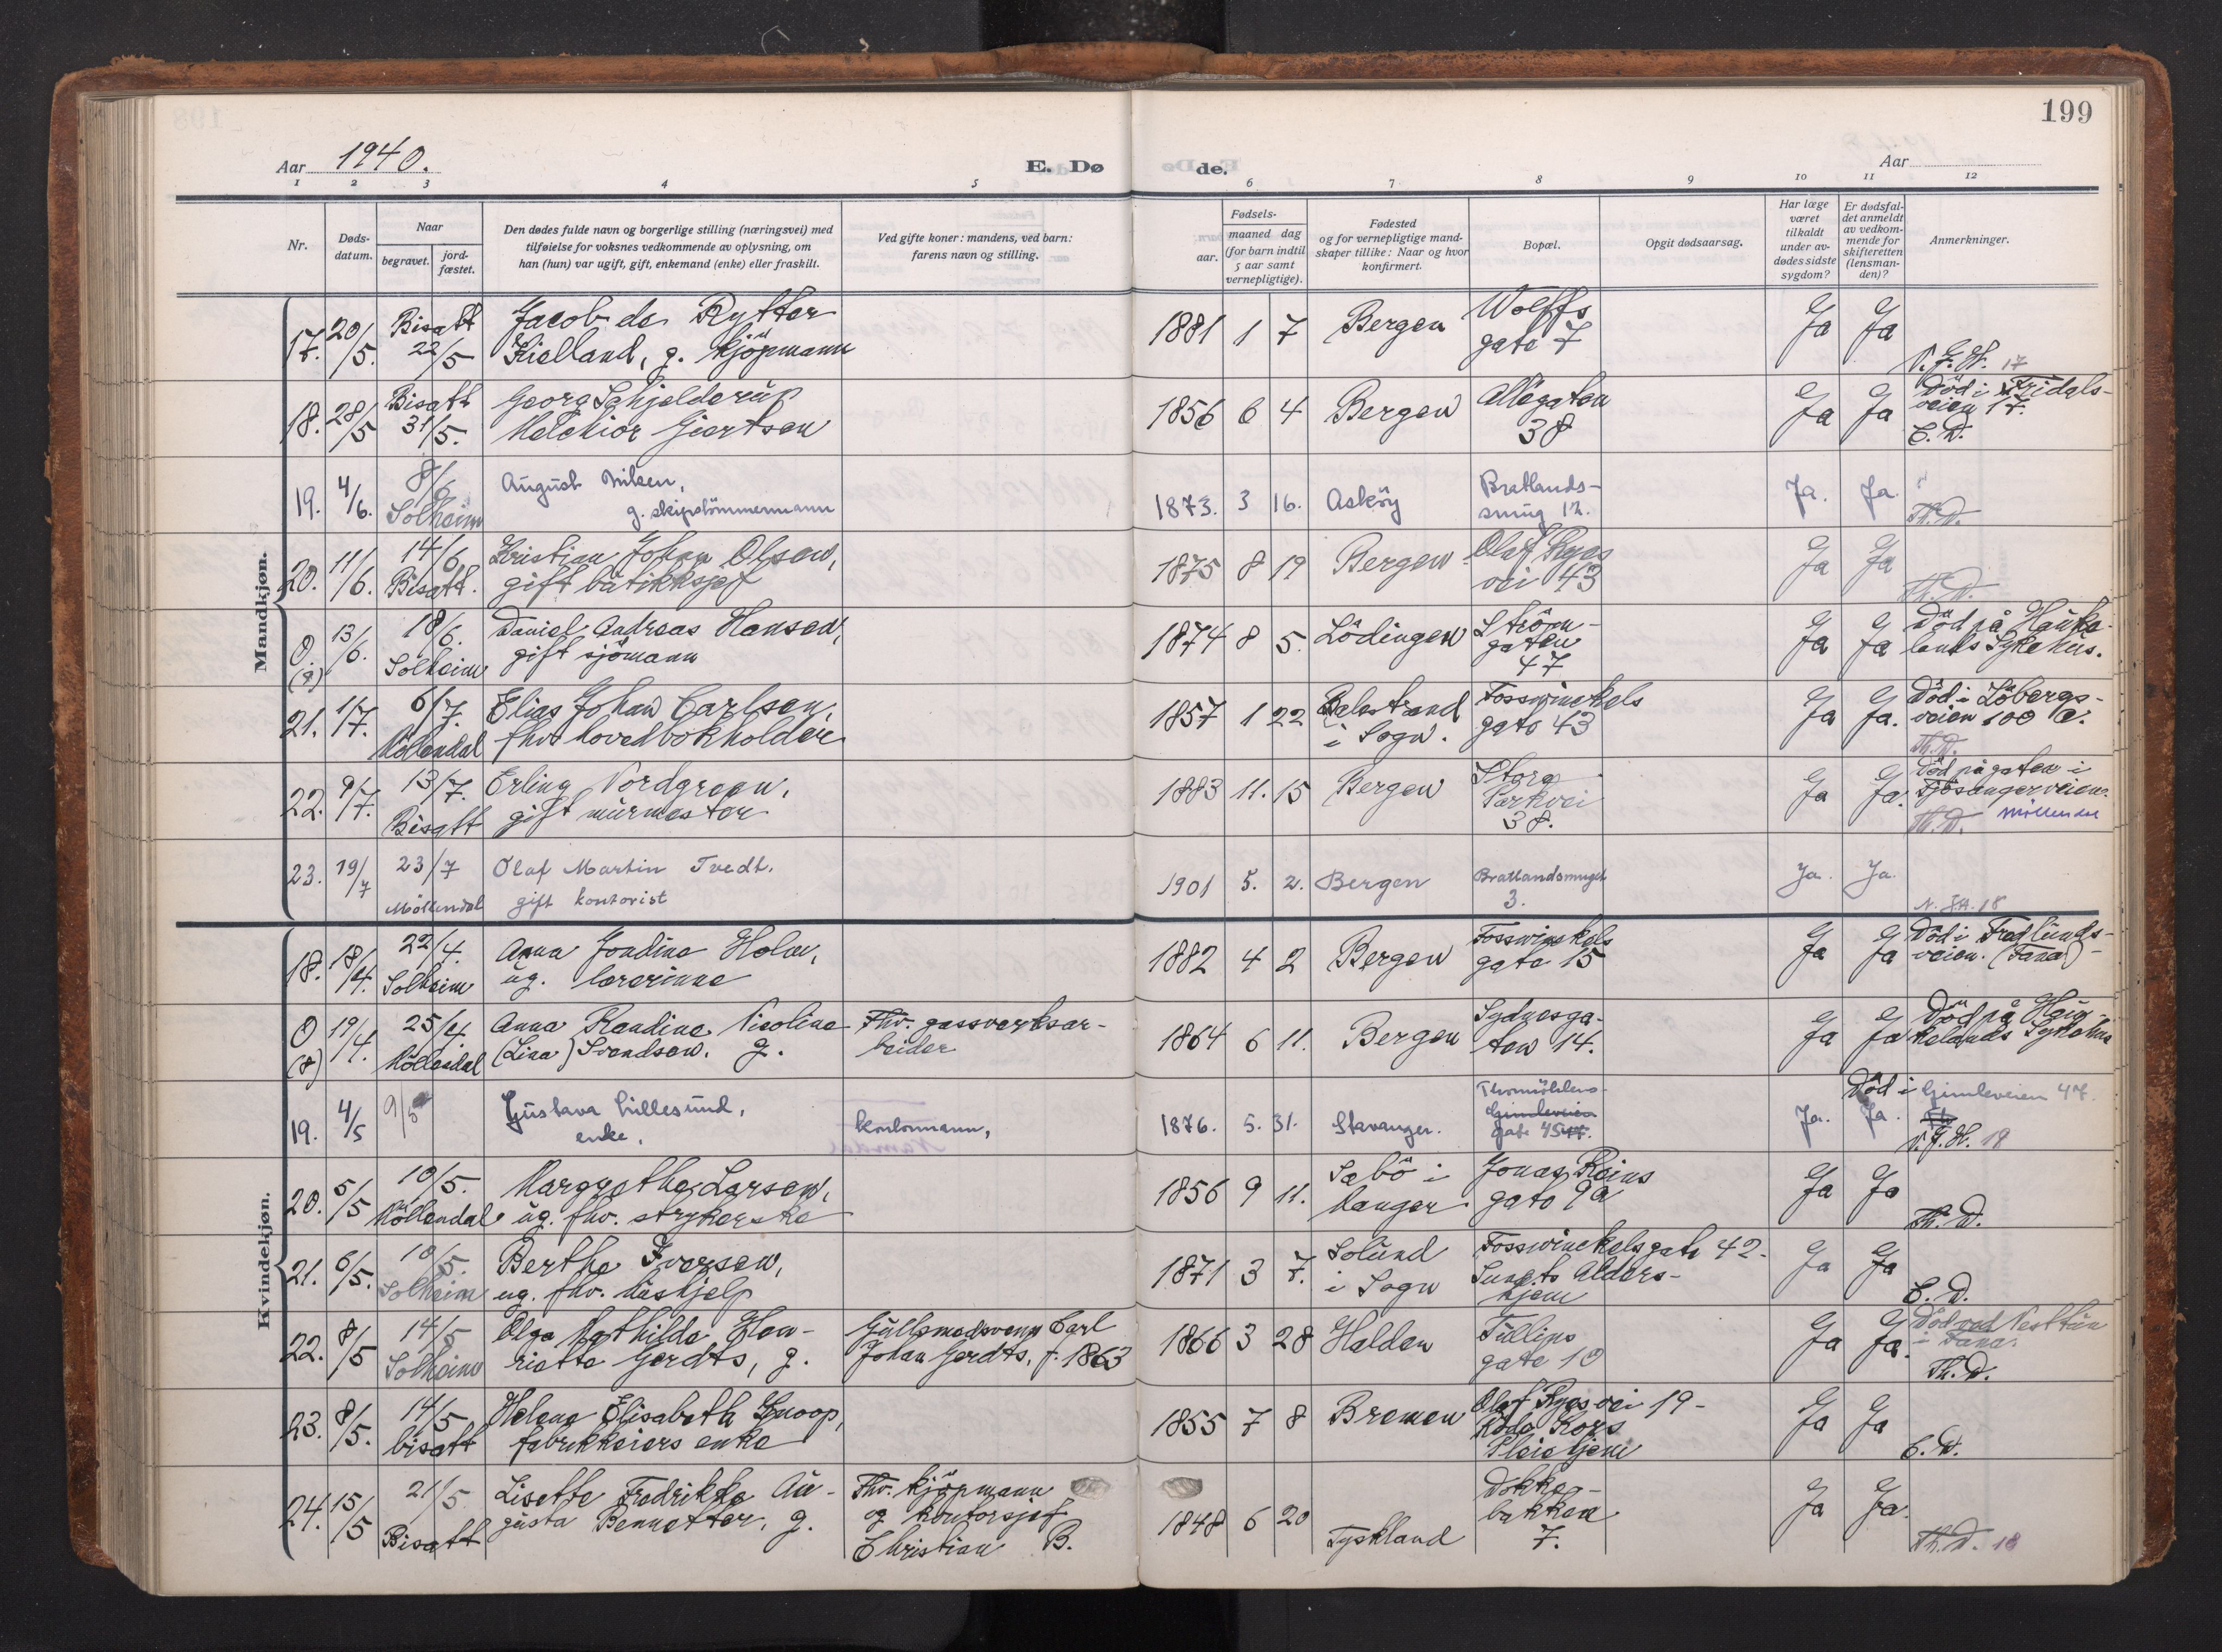 199
Aar 1940.
E. Dø de.
Aar
1 2 3 4 5 6 7 8 9 10 11 12
Nr.
Døds-
datum.
Naar
begravet.
jord-
fæstet.
Den dødes fulde navn og borgerlige stilling (næringsvei) med
tilføielse for voksnes vedkommende av oplysning, om
han (hun) var ugift, gift, enkemand (enke) eller fraskilt.
Ved gifte koner: mandens, ved barn:
farens navn og stilling.
Fødsels-
aar.
maaned dag
(for barn indtil
5 aar samt
vernepligtige).
Fødested
og for vernepligtige mand-
skaper tillike: Naar og hvor
konfirmert.
Bopæl.
Opgit dødsaarsag.
Har læge
været
tilkaldt
under av-
dødes sidste
sygdom?
Er dødsfal-
det anmeldt
av vedkom-
mende for
skifteretten
(lensman-
den)?
Anmerkninger.
Mandkjøn.
17. 20/5. Bisatt 22/5 Jacob de Rytter
Kielland, g. kjöpmann
1881 1 7 Bergen Wolffs
gate 7
Ja Ja
N. J. H. 17
18. 28/5 Bisatt 31/5. Georg Schjelderup
Melchior Giertsen
1856 6 4 Bergen Allégaten
38
Ja Ja Död i Fridals-
veien 17.
C. D.
19. 4/6. 8/6 Solheim August Nilsen,
g. skipstömmermann
1873. 3 16. Asköy Bratlands-
smug 12.
Ja. Ja.
Th. D.
20. 11/6. 14/6 Bisatt. Kristian Johan Olsen,
gift butikksjef
1875 8 19 Bergen Olaf Ryes
vei 43
Ja Ja
Th. D.
0. (9) 13/6. 18/6. Solheim Daniel Andreas Hansen,
gift sjömann
1874 8 5. Lödingen Ström-
gaten
47
Ja Ja Död på Hauke-
lands Sykehus.
21. 1/7. 6/7. Möllendal Elias Johan Carlsen,
fhv. hovedbokholder
1857 1 22 Balestrand
i Sogn. Fosswinckels
gate 43
Ja Ja. Död i Löbergs-
veien 100 C.
Th. D.
22. 9/7. 13/7. Bisatt Erling Nordgreen,
gift murmester
1883 11. 15 Bergen Store
Parkvei
38.
Ja Ja. Död på gaten i
Fjösangerveien.
Th. D. Möllendal
23. 19/7 23/7 Möllendal Olaf Martin Tvedt.
gift kontorist
1901 5. 2. Bergen Bratlandsmuget
3.
Ja. Ja.
N. J.H. 18
Kvindekjøn.
18. 18/4. 22/4. Solheim Anna Jondine Holm,
ug. lærerinne
1882 4 2 Bergen Fosswinckels
gate 15
Ja Ja Död i Fredlunds-
veien. (Fana)
0 (8) 19/4. 25/4. Möllendal Anna Randine Nicoline
(Lina) Svendsen. g.
Fhv. gassverksar-
beider
1864 6 11. Bergen Sydnesga-
ten 14.
Ja Ja Död på Hau-
kelands Sykehus
19. 4/5 9/5 Gustava Lillesund,
enke,
kontormann,
1876. 5. 31. Stavanger. Thormöhlens-
Gimleveien
gate 45 47.
Ja. Ja. Död i Gimleveien 47.
N. J. H. 19
20. 5/5 10/5. Möllendal Margrethe Larsen,
ug. fhv. strykerske
1856 9 11. Sebö i
Manger Jonas Reins
gate 9a
Ja Ja
Th. D.
21. 6/5. 10/5. Solheim Berthe Iversen,
ug. fhv. hushjelp
1871 3 7. Solund
i Sogn Fosswinckelsgate 42-
Sunets Alders-
hjem
Ja Ja
C. D.
22. 8/5 14/5 Solheim Olga Mathilde Hen-
riette Gerdts, g.
Gullsmedsvenn Carl
Johan Gerdts, f. 1863
1866 3 28 Halden Tullins
gate 10
Ja Ja. Död ved Nesttun
i Fana.
Th. D.
23. 8/5. 14/5 bisatt Helene Elisabeth Knoop,
fabrikkeiers enke
1855 7 8 Bremen Olaf Ryes vei 19-
Röde Kors
Pleiehjem
Ja Ja
C. D.
24. 15/5 21/5 Bisatt Lisette Fredrikke Au-
gusta Bennetter, g.
Fhv. kjöpmann
og kontorsjef
Christian B.
1848 6 20 Tyskland Dokke-
bakken
7.
Ja Ja.
Th. D. 18